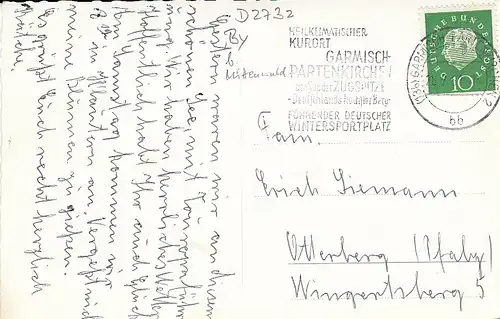 D2732
By
b.
Mittenwald
HEILKLIMATISCHER
KURORT
GARMISCH-
PARTENKIRCHEN
am Fusse der ZUGSPITZE
Deutschlands höchster Berg
FÜHRENDER DEUTSCHER
WINTERSPORTPLATZ
DEUTSCHE BUNDESPOST
10
bb
Fam.
Erich Siemann
Otterberg (Pfalz)
Wingertsberg 5
Gestern waren wir an diesem
schönen See, mit
und haben herrliches Wetter
Hoffentlich habt Ihr auch Glück
Am Samstag kommen wir
in an. Vergeßt nicht
mein Blumen zu gießen.
Es grüßt Euch recht herzlich